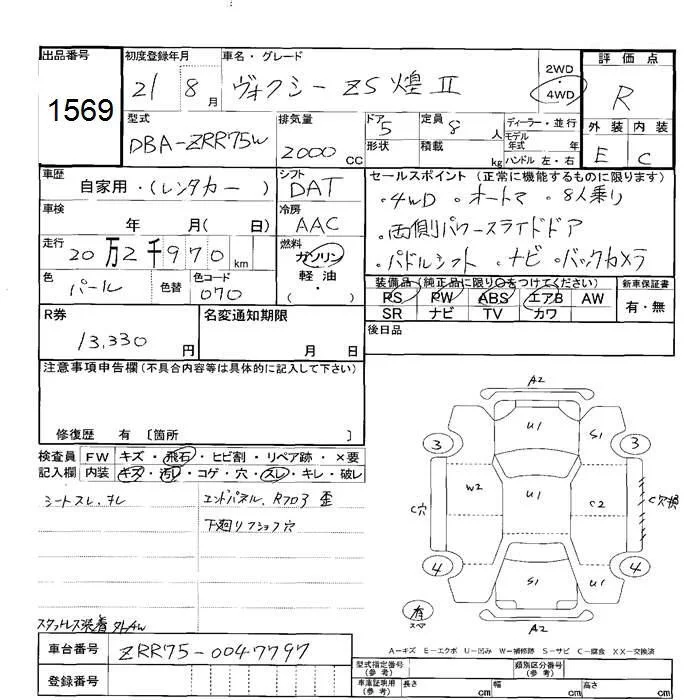 出品番号 初度登録年月 車名・グレード 評価点
1569 21 8月 ヴォクシー ZS 煌 II 2WD・4WD R
型式 DBA-ZRR75W 排気量 2000 CC ドア 5 定員 8 人 ディーラー・並行 外装 内装
形状 積載 kg モデル年式 年 ハンドル 左・右 E C
車歴 自家用・(レンタカー) シフト DAT セールスポイント(正常に機能するものに限ります)
車検 年 月( 日) 冷房 AAC ・4WD ・オートマ ・8人乗り
走行 20万2千970km 燃料 ガソリン 軽油・( ) ・両側パワースライドドア
色 パール 色替 色コード 070 ・パドルシフト ・ナビ ・バックカメラ
装備品(純正品に限り○をつけてください) 新車保証書
PS PW ABS エアB AW 有・無
SR ナビ TV カワ
R券 13,330円 名変通知期限 月 日 後日品
注意事項申告欄(不具合内容等は具体的に記入して下さい)
修復歴 有〔箇所 〕
検査員記入欄 FW キズ・飛石・ヒビ割・リペア跡・×要
内装 キズ・汚レ・コゲ・穴・スレ・キレ・破レ
シートスレ、キレ エンドパネル、Rフロア歪
下廻リ
スタッドレス装着
車台番号 ZRR75-0047797
登録番号
A2
3 U1 S1 3
C穴 W2 U1 C2
4 S1 U1 4
有 スペア A2
A-キズ E-エクボ U-凹み W-補修跡 S-サビ C-腐食 XX-交換済
型式指定番号(参考) 類別区分番号(参考)
車庫証明用(参考) 長さ cm 幅 cm 高さ cm